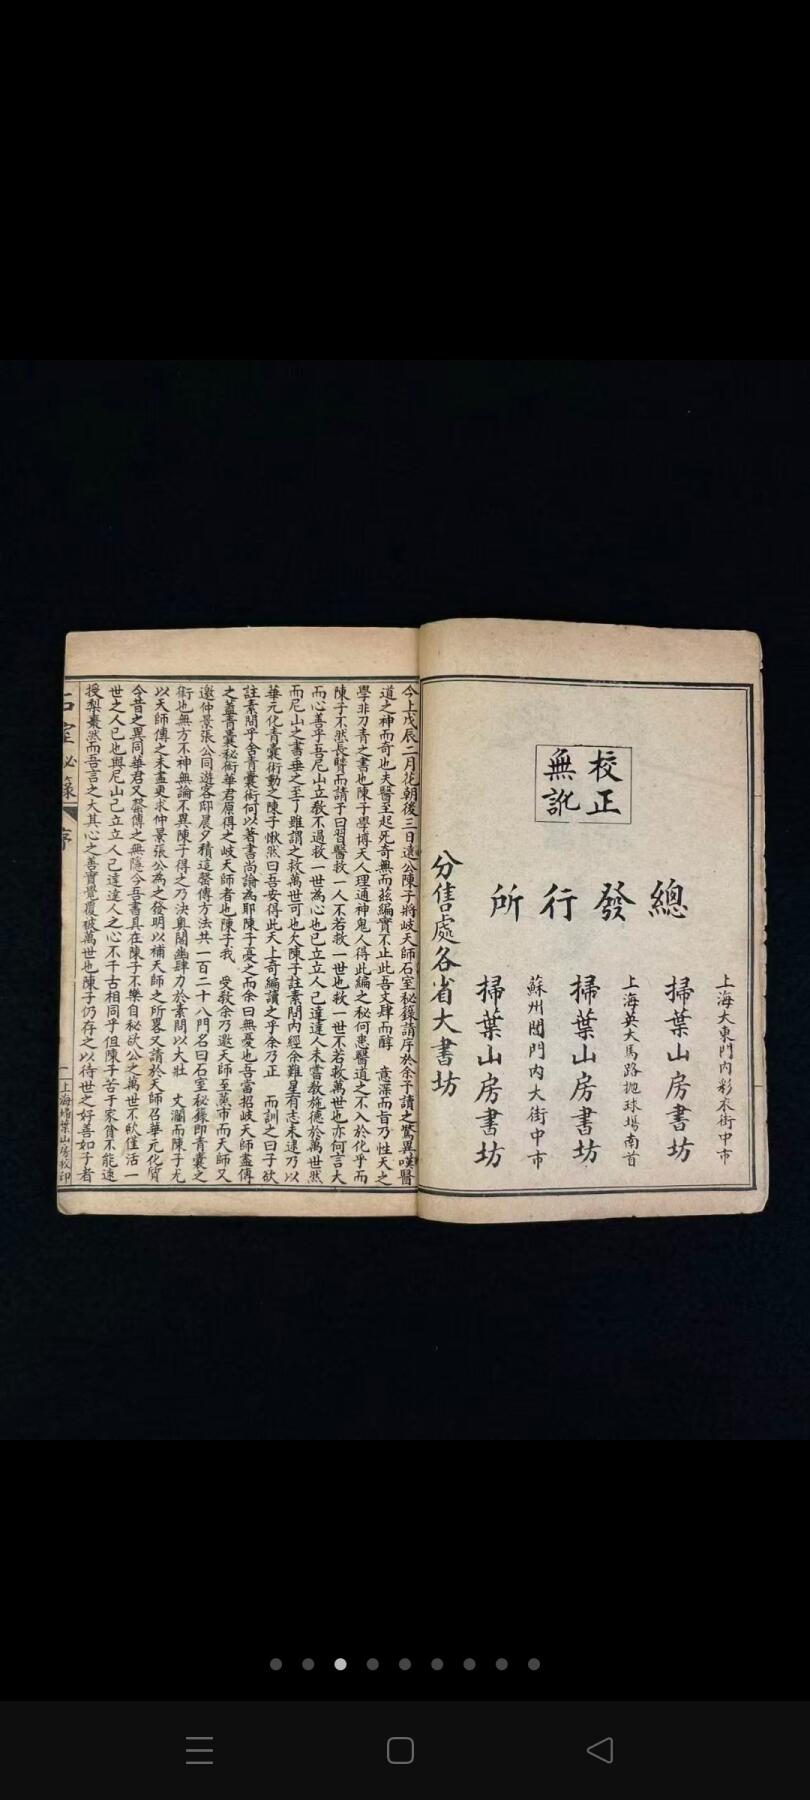 校正
無訛
總發行所
上海大東門內彩衣街中市
掃葉山房書坊
上海英大馬路拋球場南首
掃葉山房書坊
蘇州閶門內大街中市
掃葉山房書坊
分售處各省大書坊
今上戊辰二月花朝後三日遠公陳子將岐天師石室秘籙請序於余予讀之驚異嘆醫
道之神而奇也夫醫至起死奇無而茲編實不止此吾文肆而醇 意深而旨乃性天之
學非刀青之書也陳子學博天人理通神鬼人得此編之秘何患醫道之不入於化乎而
陳子不然長贊而請予曰習醫救一人不若救一世也救一世不若救萬世也亦何言大
而心善乎吾尼山立教不過救一世為心也已立立人己達達人未嘗教施德於萬世然
而尼山之書垂之至了雖謂之救萬世可也欠陳子註素問內經余難星有志未逮乃以
華元化青囊術動之陳子愀然曰吾安得此天上奇編讀之乎余乃正 而訓之曰子欲
註素問乎舍青囊術何以著書尚論為耶陳子憂之而余曰無憂也吾當招岐天師盡傳
之蓋青囊秘術華君原得之岐天師者也陳子我 受教余乃邀天師至燕市而天師又
邀仲景張公同遊客邸晨夕積這罄傳方法共一百二十八門名曰石室秘籙即青囊之
術也無方不神無論不異陳子得之乃決奧闡幽肆力於素問以大壯 文瀾而陳子尤
以天師傳之未盡更求仲景張公為之發明以補天師之所畧又請於天師召華元化質
今昔之異同華君又罄傳之無隱今吾書具在陳子不樂自秘欲公之萬世不欲僅活一
世之人已也與尼山己立立人己達達人之心不千古相同乎但陳子苦于家貧不能遠
授梨棗然而吾言之大其心之善實覺覆被萬世也陳子仍存之以待世之好善如子者
石室秘籙
序
一
上海掃葉山房校印